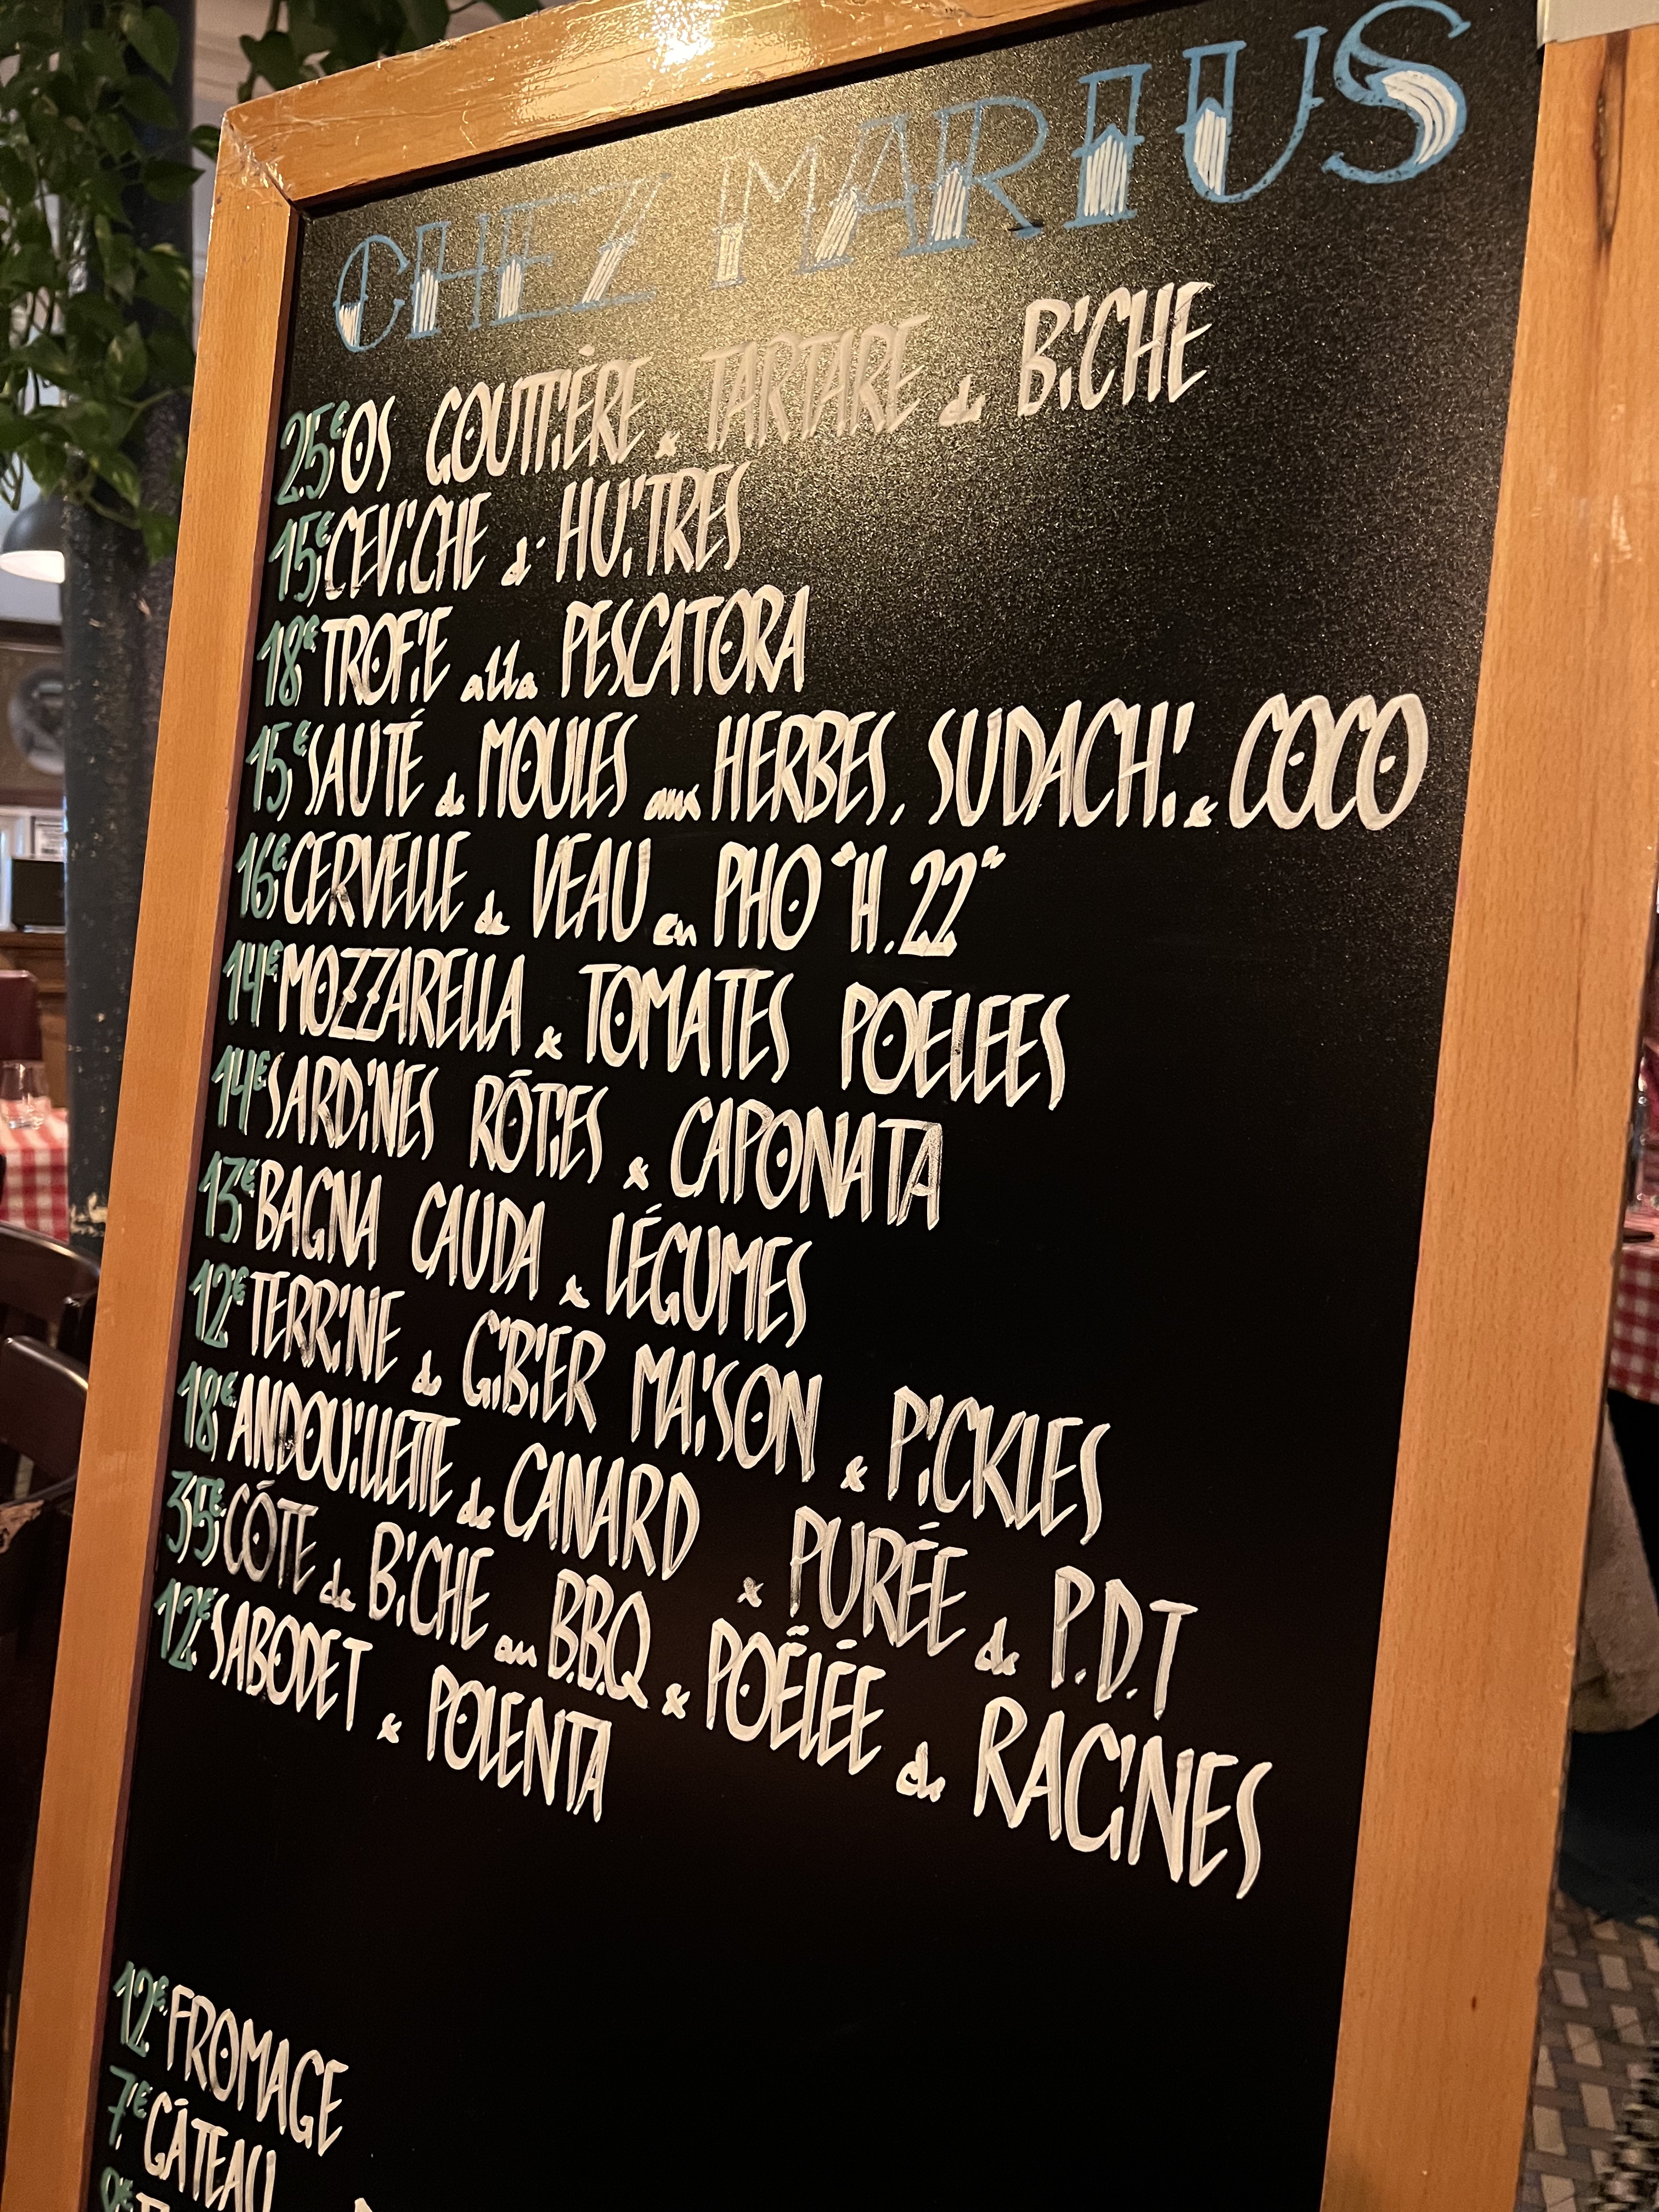 CHEZ MARIUS
25€ OS GOUTTIÈRE & TARTARE de BiCHE
15€ CEViCHE d' HUiTRES
18€ TROFiE alla PESCATORA
15€ SAUTÉ de MOULES aux HERBES, SUDACHi & COCO
16€ CERVELLE de VEAU en PHO "H.22"
14€ MOZZARELLA & TOMATES POELEES
14€ SARDiNES RÔTiES & CAPONATA
13€ BAGNA CAUDA & LÉGUMES
12€ TERRiNE de GiBiER MAiSON & PiCKLES
18€ ANDOUiLLETTE de CANARD & PURÉE de P.D.T
35€ CÔTE de BiCHE au B.B.Q & POËLÉE de RACiNES
12€ SABODET & POLENTA
12€ FROMAGE
7€ GÂTEAU